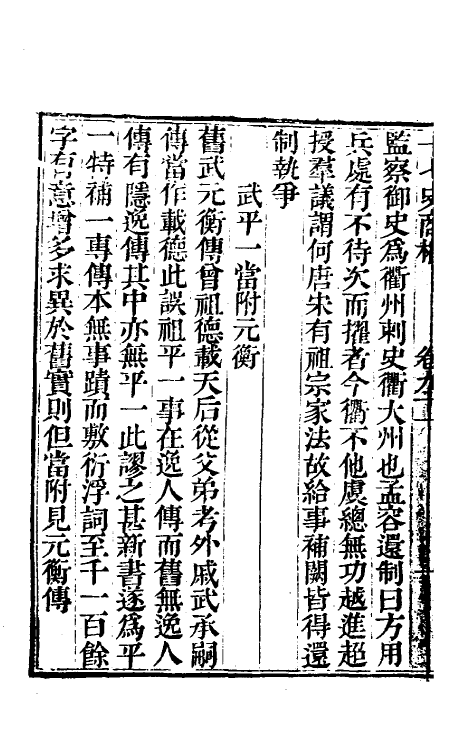 十七史商榷 卷九十
監察御史爲衢州刺史衢大州也孟容還制曰方用
兵處有不待次而擢者今衢不他虞總無功越進超
授羣議謂何唐宋有祖宗家法故給事補闕皆得還
制執爭
武平一當附元衡
舊武元衡傳曾祖德載天后從父弟考外戚武承嗣
傳當作載德此誤祖平一事在逸人傳而舊無逸人
傳有隱逸傳其中亦無平一此謬之甚新書遂爲平
一特補一專傳本無事蹟而敷衍浮詞至千一百餘
字有意增多求異於舊實則但當附見元衡傳